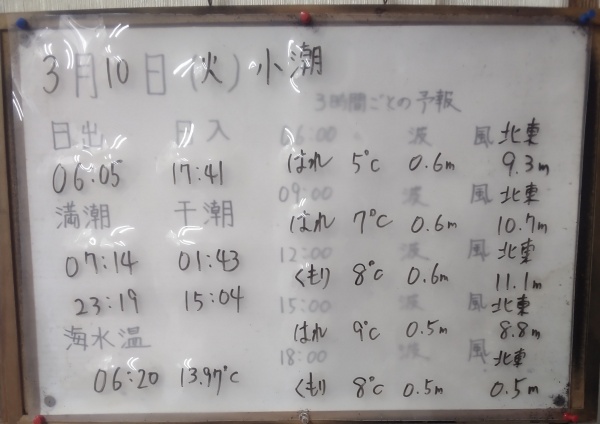 3月10日(火)小潮
3時間ごとの予報
日出 日入
06:05 17:41
満潮 干潮
07:14 01:43
23:19 15:04
海水温
06:20 13.97℃
06:00 波 風 北東
はれ 5℃ 0.6m 9.3m
09:00 波 風 北東
はれ 7℃ 0.6m 10.7m
12:00 波 風 北東
くもり 8℃ 0.6m 11.1m
15:00 波 風 北東
はれ 9℃ 0.5m 8.8m
18:00 波 風 北東
くもり 8℃ 0.5m 0.5m